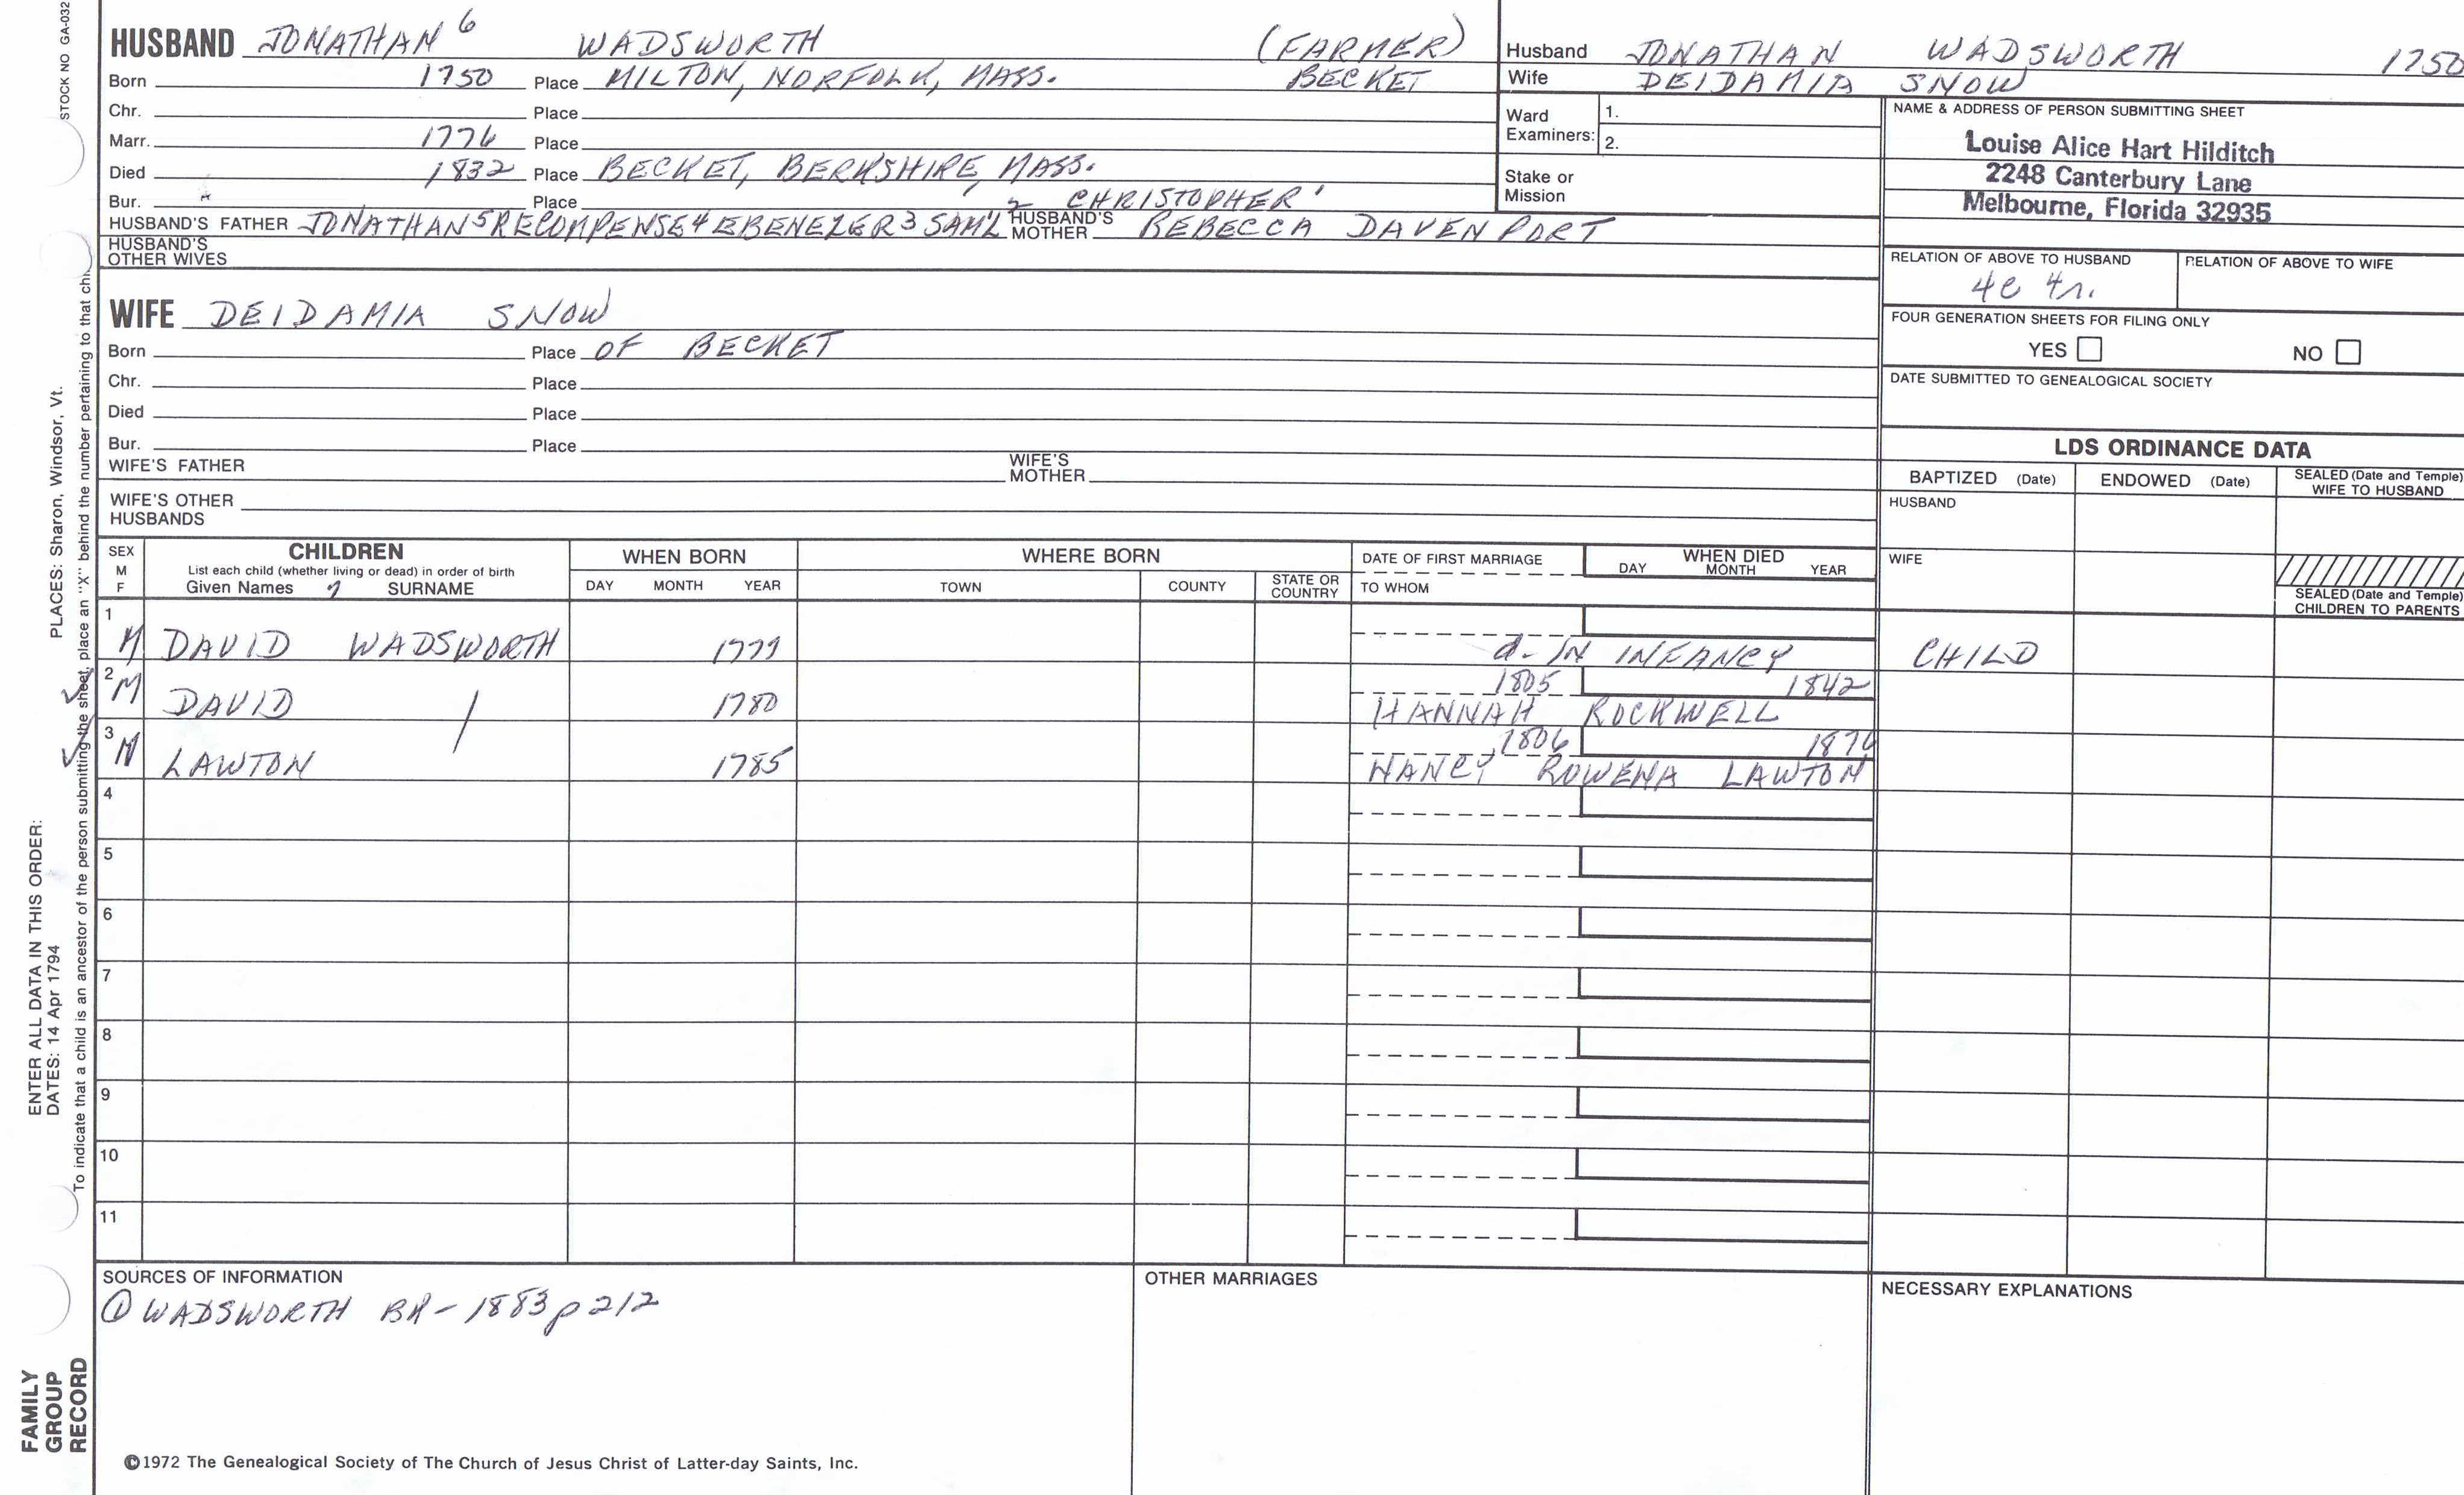 STOCK NO GA-032
PLACES: Sharon, Windsor, Vt.
ENTER ALL DATA IN THIS ORDER:
DATES: 14 Apr 1794
To indicate that a child is an ancestor of the person submitting the sheet, place an "X" behind the number pertaining to that chi
FAMILY
GROUP
RECORD
HUSBAND JONATHAN 6 WADSWORTH (FARMER)
Born 1750 Place MILTON, NORFOLK, MASS. BECKET
Chr. Place
Marr. 1776 Place
Died 1832 Place BECKET, BERKSHIRE, MASS.
Bur. Place 2 CHRISTOPHER'
HUSBAND'S FATHER JONATHAN 5 RECOMPENSE 4 EBENEZER 3 SAM'L HUSBAND'S MOTHER REBECCA DAVENPORT
HUSBAND'S OTHER WIVES
WIFE DEIDAMIA SNOW
Born Place OF BECKET
Chr. Place
Died Place
Bur. Place
WIFE'S FATHER WIFE'S MOTHER
WIFE'S OTHER HUSBANDS
Husband JONATHAN WADSWORTH 1750
Wife DEIDAMIA SNOW
Ward Examiners: 1.
2.
Stake or Mission
NAME & ADDRESS OF PERSON SUBMITTING SHEET
Louise Alice Hart Hilditch
2248 Canterbury Lane
Melbourne, Florida 32935
RELATION OF ABOVE TO HUSBAND RELATION OF ABOVE TO WIFE
4c 4r.
FOUR GENERATION SHEETS FOR FILING ONLY
YES NO
DATE SUBMITTED TO GENEALOGICAL SOCIETY
LDS ORDINANCE DATA
BAPTIZED (Date) ENDOWED (Date) SEALED (Date and Temple) WIFE TO HUSBAND
HUSBAND
WIFE
SEALED (Date and Temple) CHILDREN TO PARENTS
SEX M F
CHILDREN
List each child (whether living or dead) in order of birth
Given Names 7 SURNAME
WHEN BORN
DAY MONTH YEAR
WHERE BORN
TOWN COUNTY STATE OR COUNTRY
DATE OF FIRST MARRIAGE
TO WHOM
WHEN DIED
DAY MONTH YEAR
1 M DAVID WADSWORTH 1779 d- IN INFANCY CHILD
2 M DAVID / 1780 1805 1842
HANNAH ROCKWELL
3 M LAWTON 1785 1806 1876
NANCY ROWENA LAWTON
4
5
6
7
8
9
10
11
SOURCES OF INFORMATION
① WADSWORTH BK- 1883 p 212
OTHER MARRIAGES
NECESSARY EXPLANATIONS
©1972 The Genealogical Society of The Church of Jesus Christ of Latter-day Saints, Inc.